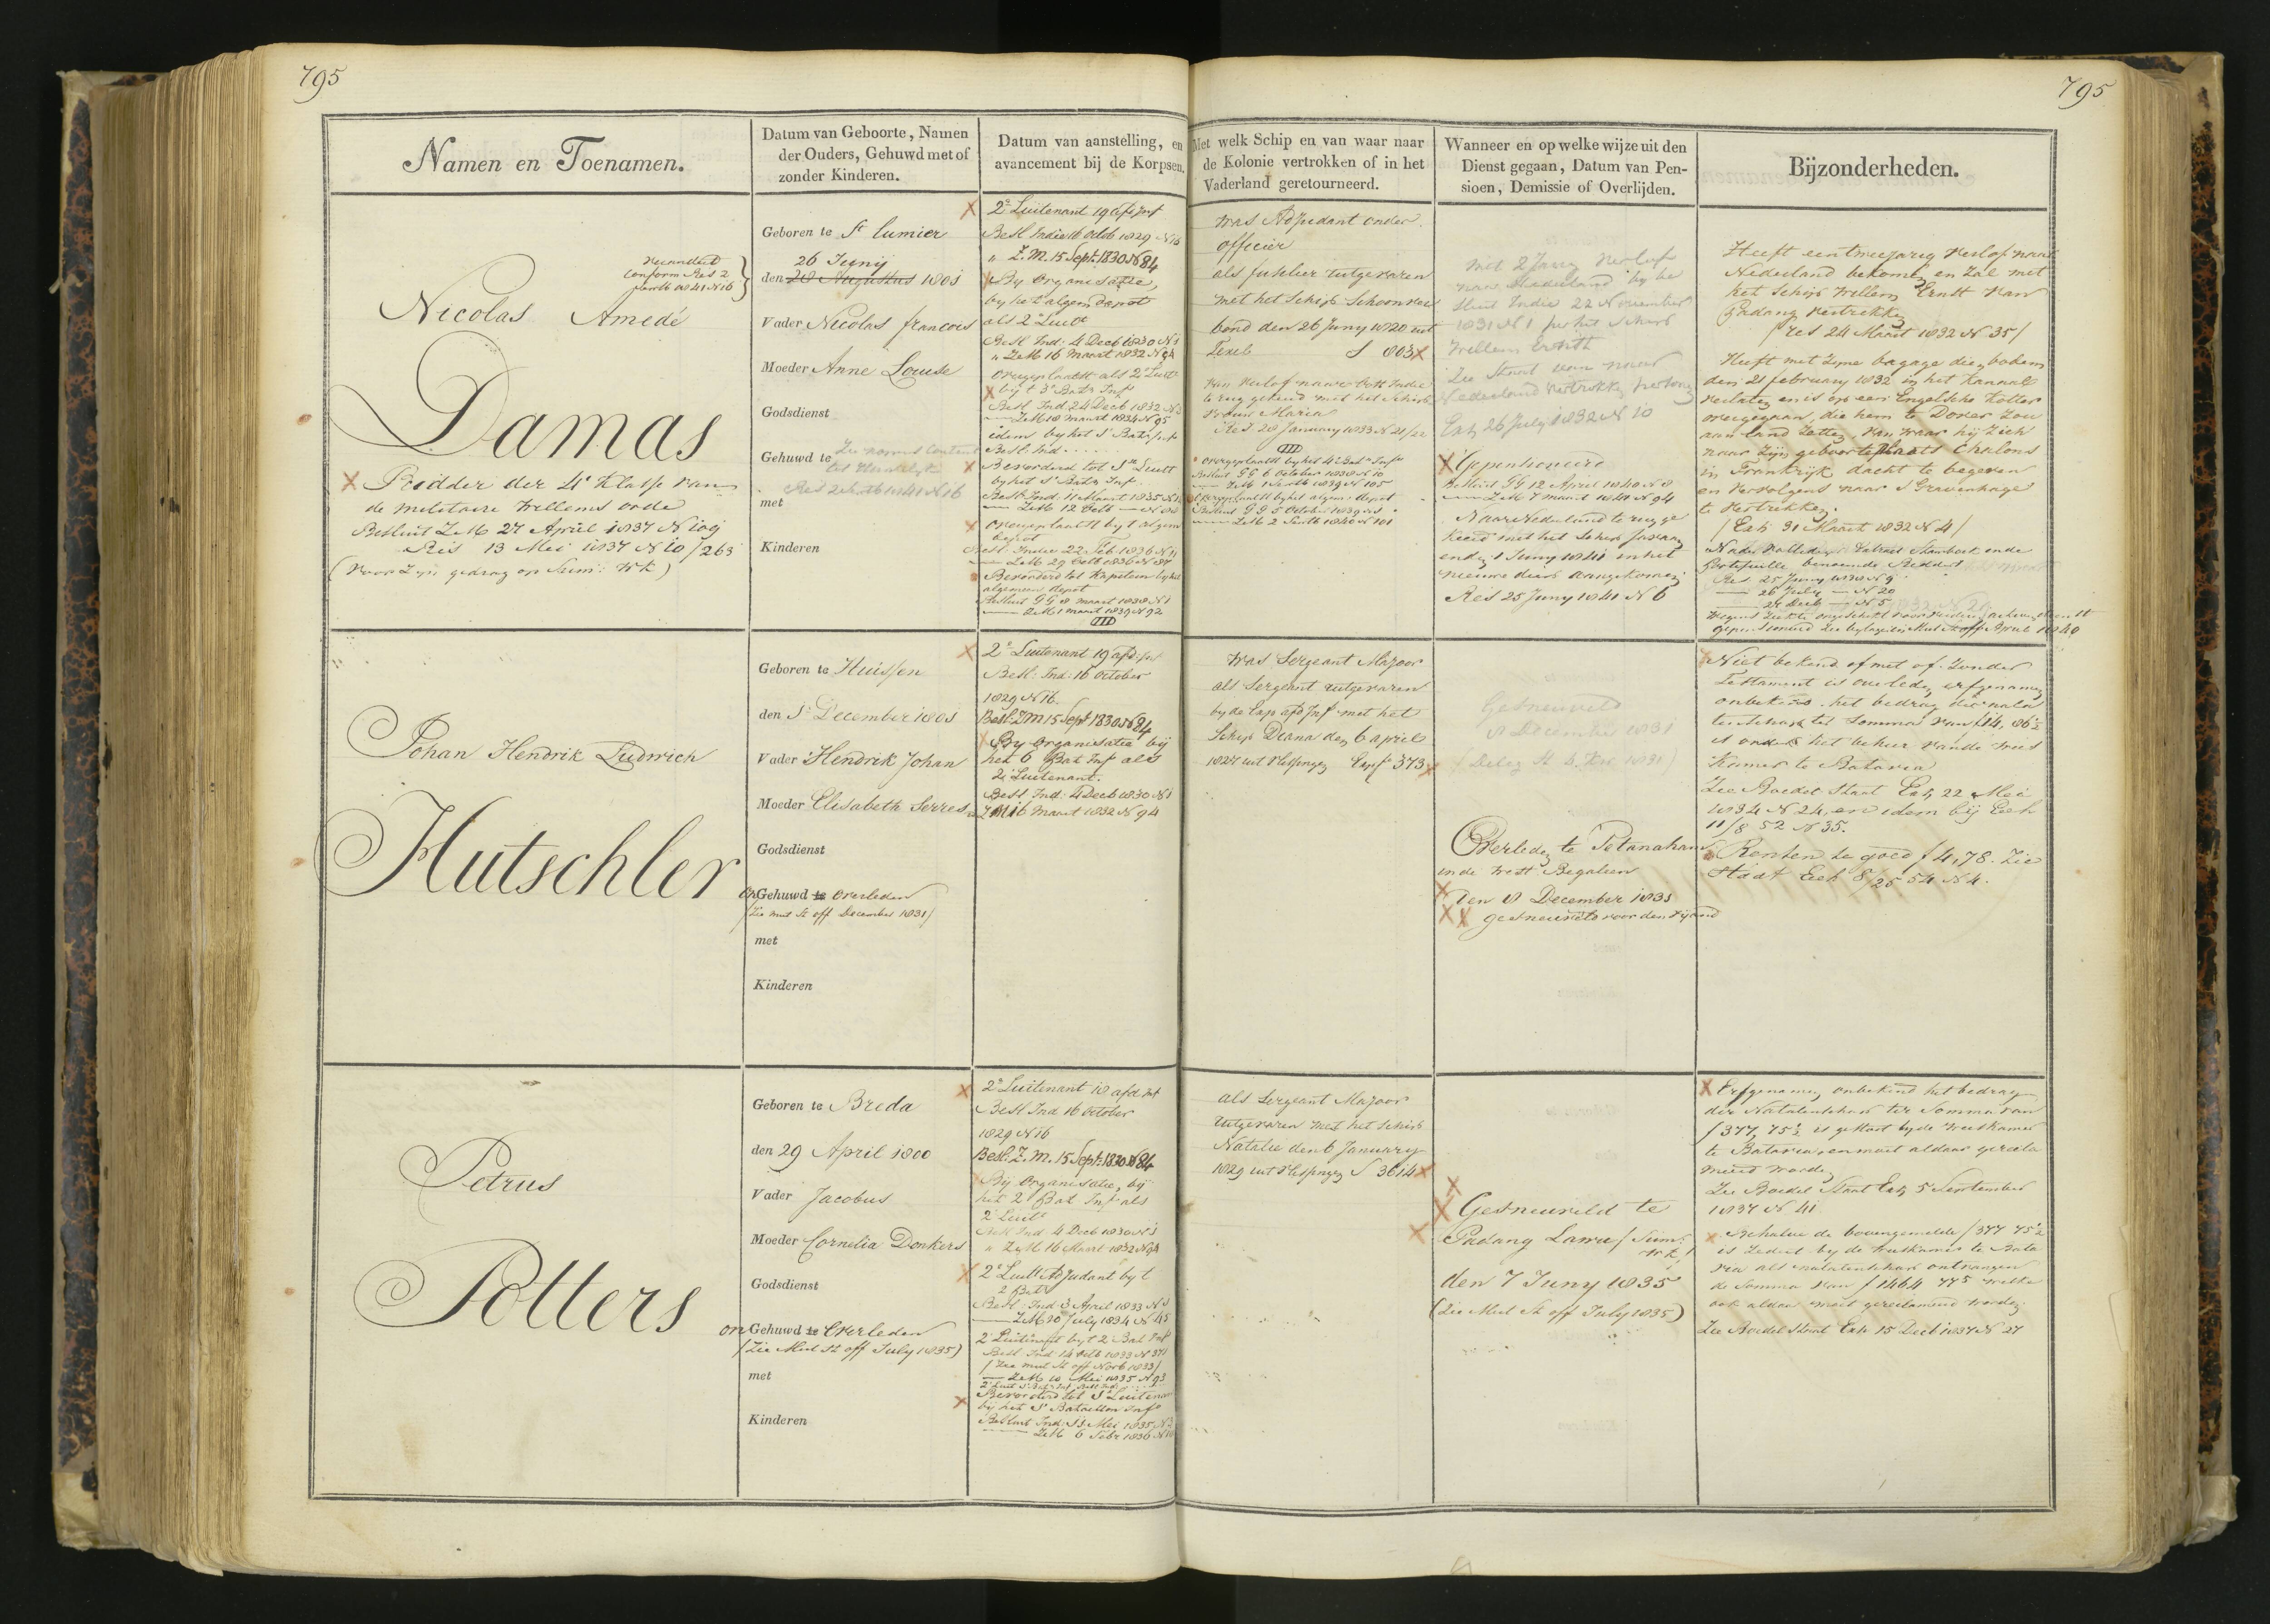 795
795
Namen en Toenamen.
Datum van Geboorte, Namen
der Ouders, Gehuwd met of
zonder Kinderen.
Datum van aanstelling, en
avancement bij de Korpsen.
Met welk Schip en van waar naar
de Kolonie vertrokken of in het
Vaderland geretourneerd.
Wanneer en op welke wijze uit den
Dienst gegaan, Datum van Pen-
sioen, Demissie of Overlijden.
Bijzonderheden.
veranderd
conform Res 2
1841 N 16
Nicolas Amedé
Damas
Ridder der 4e Klasse van
de militaire Willems orde
Besluit ZM 27 April 1837 N 109
Res 13 Mei 1837 N 10/263
(voor zijn gedrag op Sum: WK)
Geboren te St lumier
26 Junij
den 28 Augustus 1803
Vader Nicolas francois
Moeder Anne Louise
Godsdienst
Gehuwd te
met
Kinderen
2e Luitenant 19 afd Inf
Besl Indie 16 Octob 1829 N 16
" Z.M. 15 Sept. 1830 N 84
By Organisatie,
by het algem Depot
als 2e Luit
Besl Ind: 4 Decb 1830 N 1
" ZM 16 Maart 1832 N 94
overgeplaatst als 2e Luit
by t 3e Bat Inf
Besl Ind 24 Decb 1832 N 3
ZM 18 maart 1834 N 95
idem by het 1e Bat Inf
Besl. Ind.
Bevorderd tot 1e Luit
by het 1e Bat Inf
Besl: Ind 11 Maart 1835 N
ZM 12 Octb
overgeplaatst by t algem
Depot
Besl: Indie 22 Feb 1836 N 11
ZM 29 Octb 1836 N 87
Bevorderd tot Kapitein by het
algemeen Depot
Besluit GG 8 maart 1838 N 1
ZM 1 maart 1839 N 92
was Adjudant onder
officier
als fuselier uitgevaren
met het Schip Schoonver
bond den 26 Juny 1820 uit
Texel S 803
van verlof naar Oost Indie
te rug gekeerd met het Schip
Vrouw Maria
Res 28 January 1833 N 21
overgeplaatst by het 4e Bat Inf
Besluit GG 6 October 1838 N 10
ZM 1 Septb 1839 N 105
overgeplaatst by het algem: depot
Besluit GG 5 October 1839
ZM 2 Septb 1840 N 101
met 2 Jarig verlof
naar Nederland by be
sluit Indie 22 November
1831 N 1 per het Schip
Willem Ernst
Zie Staat van naar
Nederland vertrokken persone
Exh 26 July 1832 N 10
Gepensioneerd
Besluit GG 12 April 1840 N 8
ZM 7 maart 1841 N 94
Naar Nederland te rugge
keerd met het Schip
enden 1 Juny 1841 in het
nieuwe diep aangekomen
Res 25 Juny 1841 N 6
Heeft een tweejarig verlof naar
Nederland bekomen en zal met
het Schip Willem Ernst van
Padang vertrekken
/Res 24 Maart 1832 N 35/
Heeft met zijne bagage dien bodem
den 21 february 1832 in het Kanaal
verlaten en is op een Engelsche Kotter
overgegaan, die hem te Dover zou
aan land zetten van waar hij zich
naar zijn geboorteplaats Chalons
in Frankrijk dacht te begeven
en vervolgens naar s Gravenhage
te vertrekken.
/Exh 31 Maart 1832 N 4/
Nader Extract Stamboek inde
portefeuille benoemde Ridders
Res 25 Juny 1838 N 9
26 July N 20
24 Decb N 5
gepensioneerd April 1840
Johan Hendrik Ludwich
Hutschler
Geboren te Huissen
den 5e December 1803
Vader Hendrik Johan
Moeder Elisabeth Serres
Godsdienst
onGehuwd te overleden
/Zie mut St off December 1831/
met
Kinderen
2e Luitenant 19 afd: Inf
Besl: Ind: 16 October
1829 N 16.
Besl: ZM 15 Sept 1830 N 84
By Organisatie bij
het 6 Bat Inf als
2e Luitenant.
Besl Ind: 4 Decb 1830 N 1
ZM 16 maart 1832 N 94
was Sergeant Majoor
als Sergeant uitgevaren
by de Exp afd Inf met het
Schip Diana den 6 april
1827 uit Vlissingen Exp 373
Gesneuveld
8 December 1831
Overleden te Petanahan
inde West Begaleen
Den 8 December 1831
gesneuveld voor den vijand
Niet bekend of met of zonder
Testament is overleden erfgenamen
onbekend. het bedrag der nala
tenschap ter Somma van f 14, 86½
is onder het beheer van de wees
Kamer te Batavia
Zie Boedel Staat Exh 22 Mei
1834 N 24, en idem bij Exh
11/8 52 N 35.
Renten te goed f 4,78. Zie
Staat Exh 8/25 54 N 4.
Petrus
Potters
Geboren te Breda
den 29 April 1800
Vader Jacobus
Moeder Cornelia Donkers
Godsdienst
onGehuwd te Overleden
/Zie Mut St off July 1835)
met
Kinderen
2e Luitenant 18 afd Inf
Besl Ind 16 October
1829 N 16
Besl: Z.M. 15 Sept: 1830 N 84
Bij Organisatie, bij
het 2 Bat Inf als
2e Luit
Besl Ind 4 Decb 1830 N 1
" ZM 16 Maart 1832 N 94
2e Luit Adjudant by t
2 Bat
Besl: Ind 3 April 1833 N 1
ZM 10 July 1834 N 45
2e Luitenant by t 2 Bat Inf
Besl Ind 14 Octb 1833 N 371
/Zie mut St off Novb 1833/
ZM 10 Mei 1835 N 93
Bevorderd tot 1e Luitenant
bij het 1e Bataillon Inf
Besluit Ind: 13 Mei 1835 N 3
ZM 6 Febr 1836
als Sergeant Majoor
uitgevaren met het Schip
Natalie den 6 January
1829 uit Vlissingen S 3614
Gesneuveld te
Padang Lawu / Sum:
WK /
den 7 Juny 1835
(Zie Mut St off July 1835)
Erfgenamen onbekend het bedrag
der Nalatenschap ter Somma van
f 377, 75½ is gestort by de Weeskamer
te Batavia, en moet aldaar gerecla
meerd worden
Zie Boedel Staat Exh 5 September
1837 N 41
Behalve de bovengemelde f 377 75½
is zedert by de weeskamer te Bata
via als nalatenschap ontvangen
de Somma van f 1464 77⁵ welke
ook aldaar moet gereclameerd worden
Zie Boedel Staat Exh 15 Decb 1837 N 27